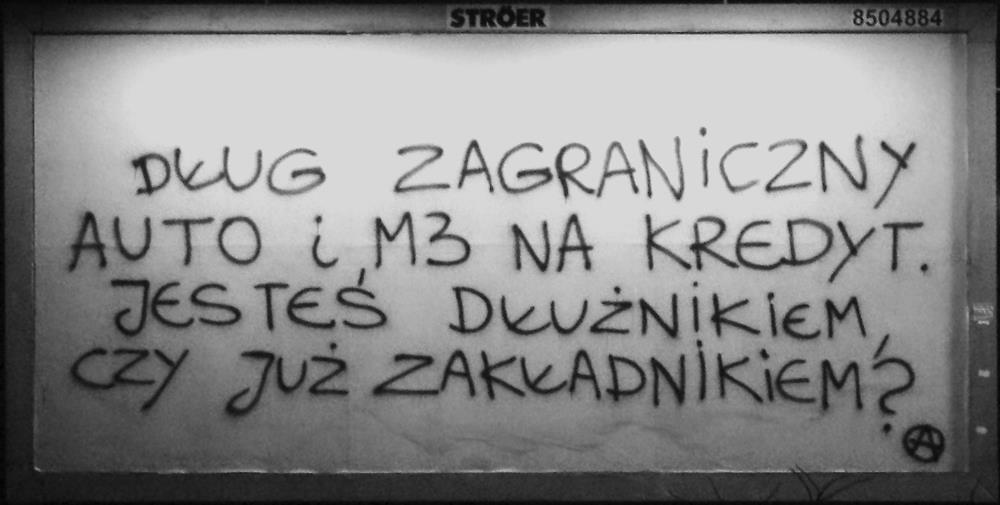 STRÖER 8504884
DŁUG ZAGRANiCZNY
AUTO i M3 NA KREDYT.
JESTEŚ DŁUŻNiKiEM,
CZY JUŻ ZAKŁADNiKiEM?
A